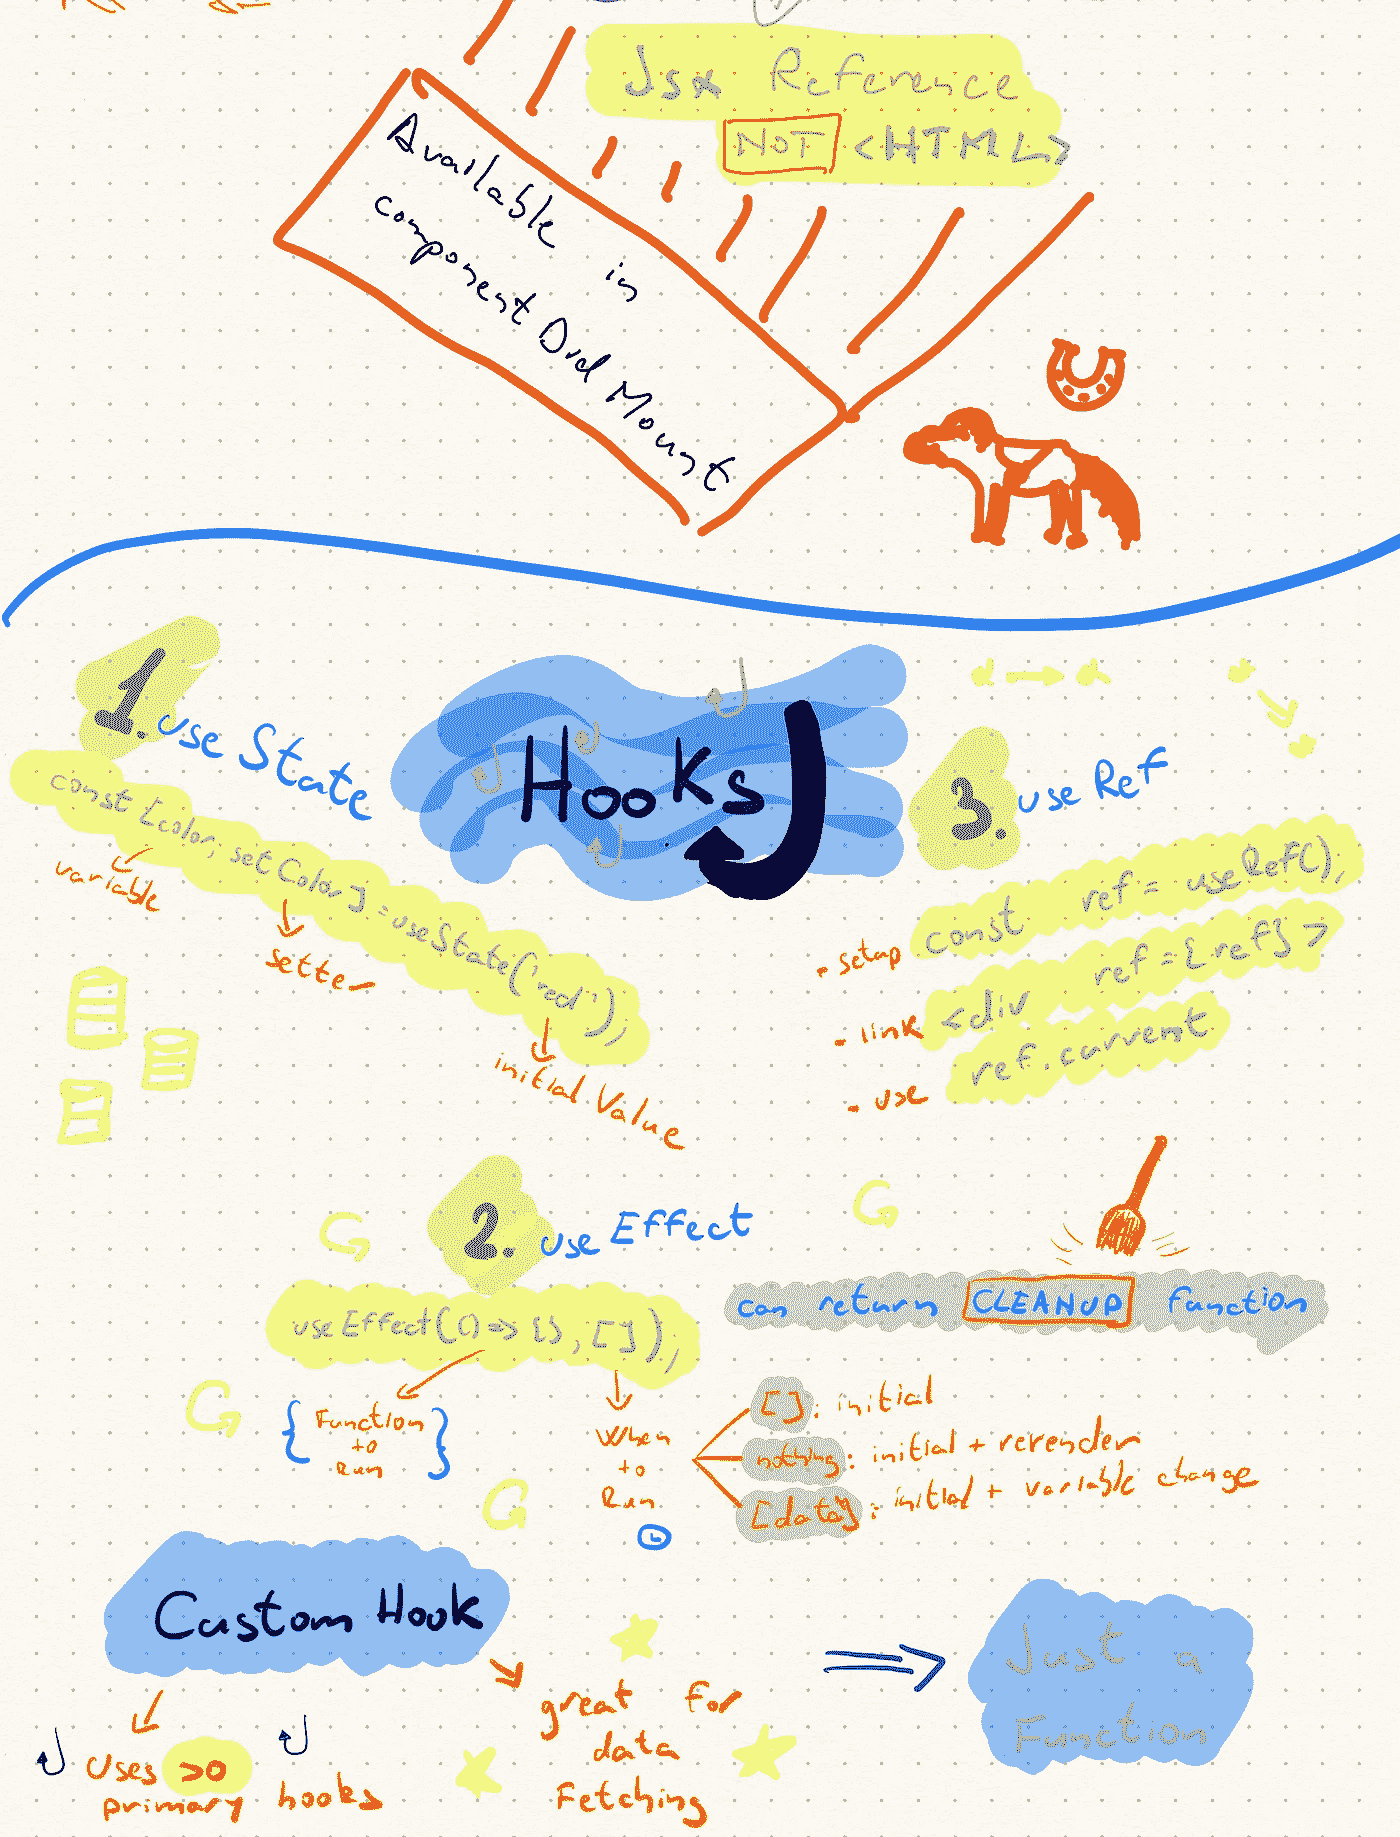 Jsx Reference
NOT <HTML>
Available in
component Did Mount
Hooks
1. use State
const [color, setColor] = useState("red");
variable
setter
initial Value
3. use Ref
• setup const ref = useRef();
- link <div ref={ref} >
- use ref.current
2. use Effect
useEffect(()=> {}, []);
{ Function
to
Run }
When
to
Run
can return CLEANUP function
[]: initial
nothing: initial + rerender
[data]: initial + variable change
Custom Hook
Uses >0
primary hooks
great for
data
Fetching
Just a
Function